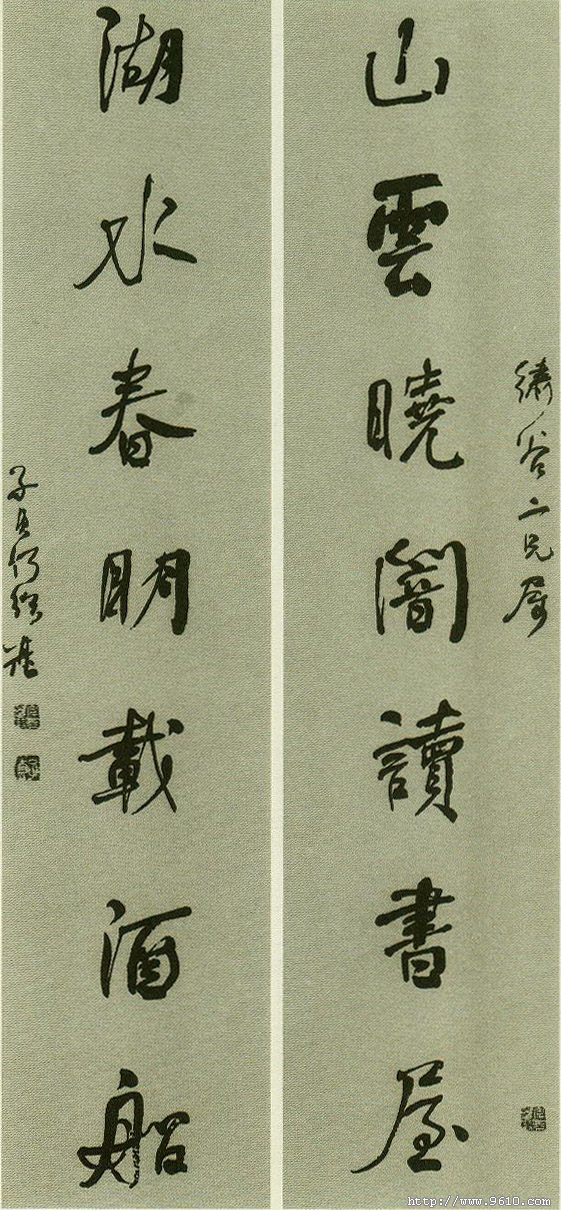 繡谷二兄屬
山雲曉闇讀書屋
湖水春明載酒船
子貞何紹基
http://www.9610.com